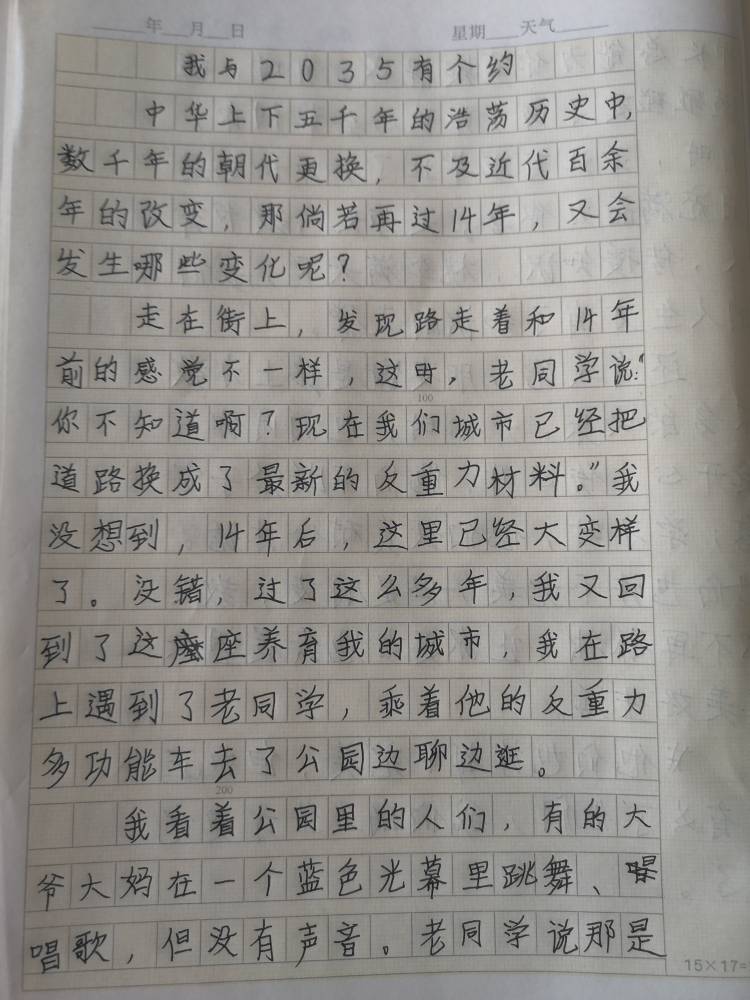 年 月 日 星期 天气
我与2035有个约
中华上下五千年的浩荡历史中,
数千年的朝代更换，不及近代百余
年的改变，那倘若再过14年，又会
发生哪些变化呢？
走在街上，发现路走着和14年
前的感觉不一样，这时，老同学说:“
你不知道啊？现在我们城市已经把
道路换成了最新的反重力材料。”我
没想到，14年后，这里已经大变样
了。没错，过了这么多年，我又回
到了这座养育我的城市，我在路
上遇到了老同学，乘着他的反重力
多功能车去了公园边聊边逛。
我看着公园里的人们，有的大
爷大妈在一个蓝色光幕里跳舞、
唱歌，但没有声音。老同学说那是
100
200
15×17=